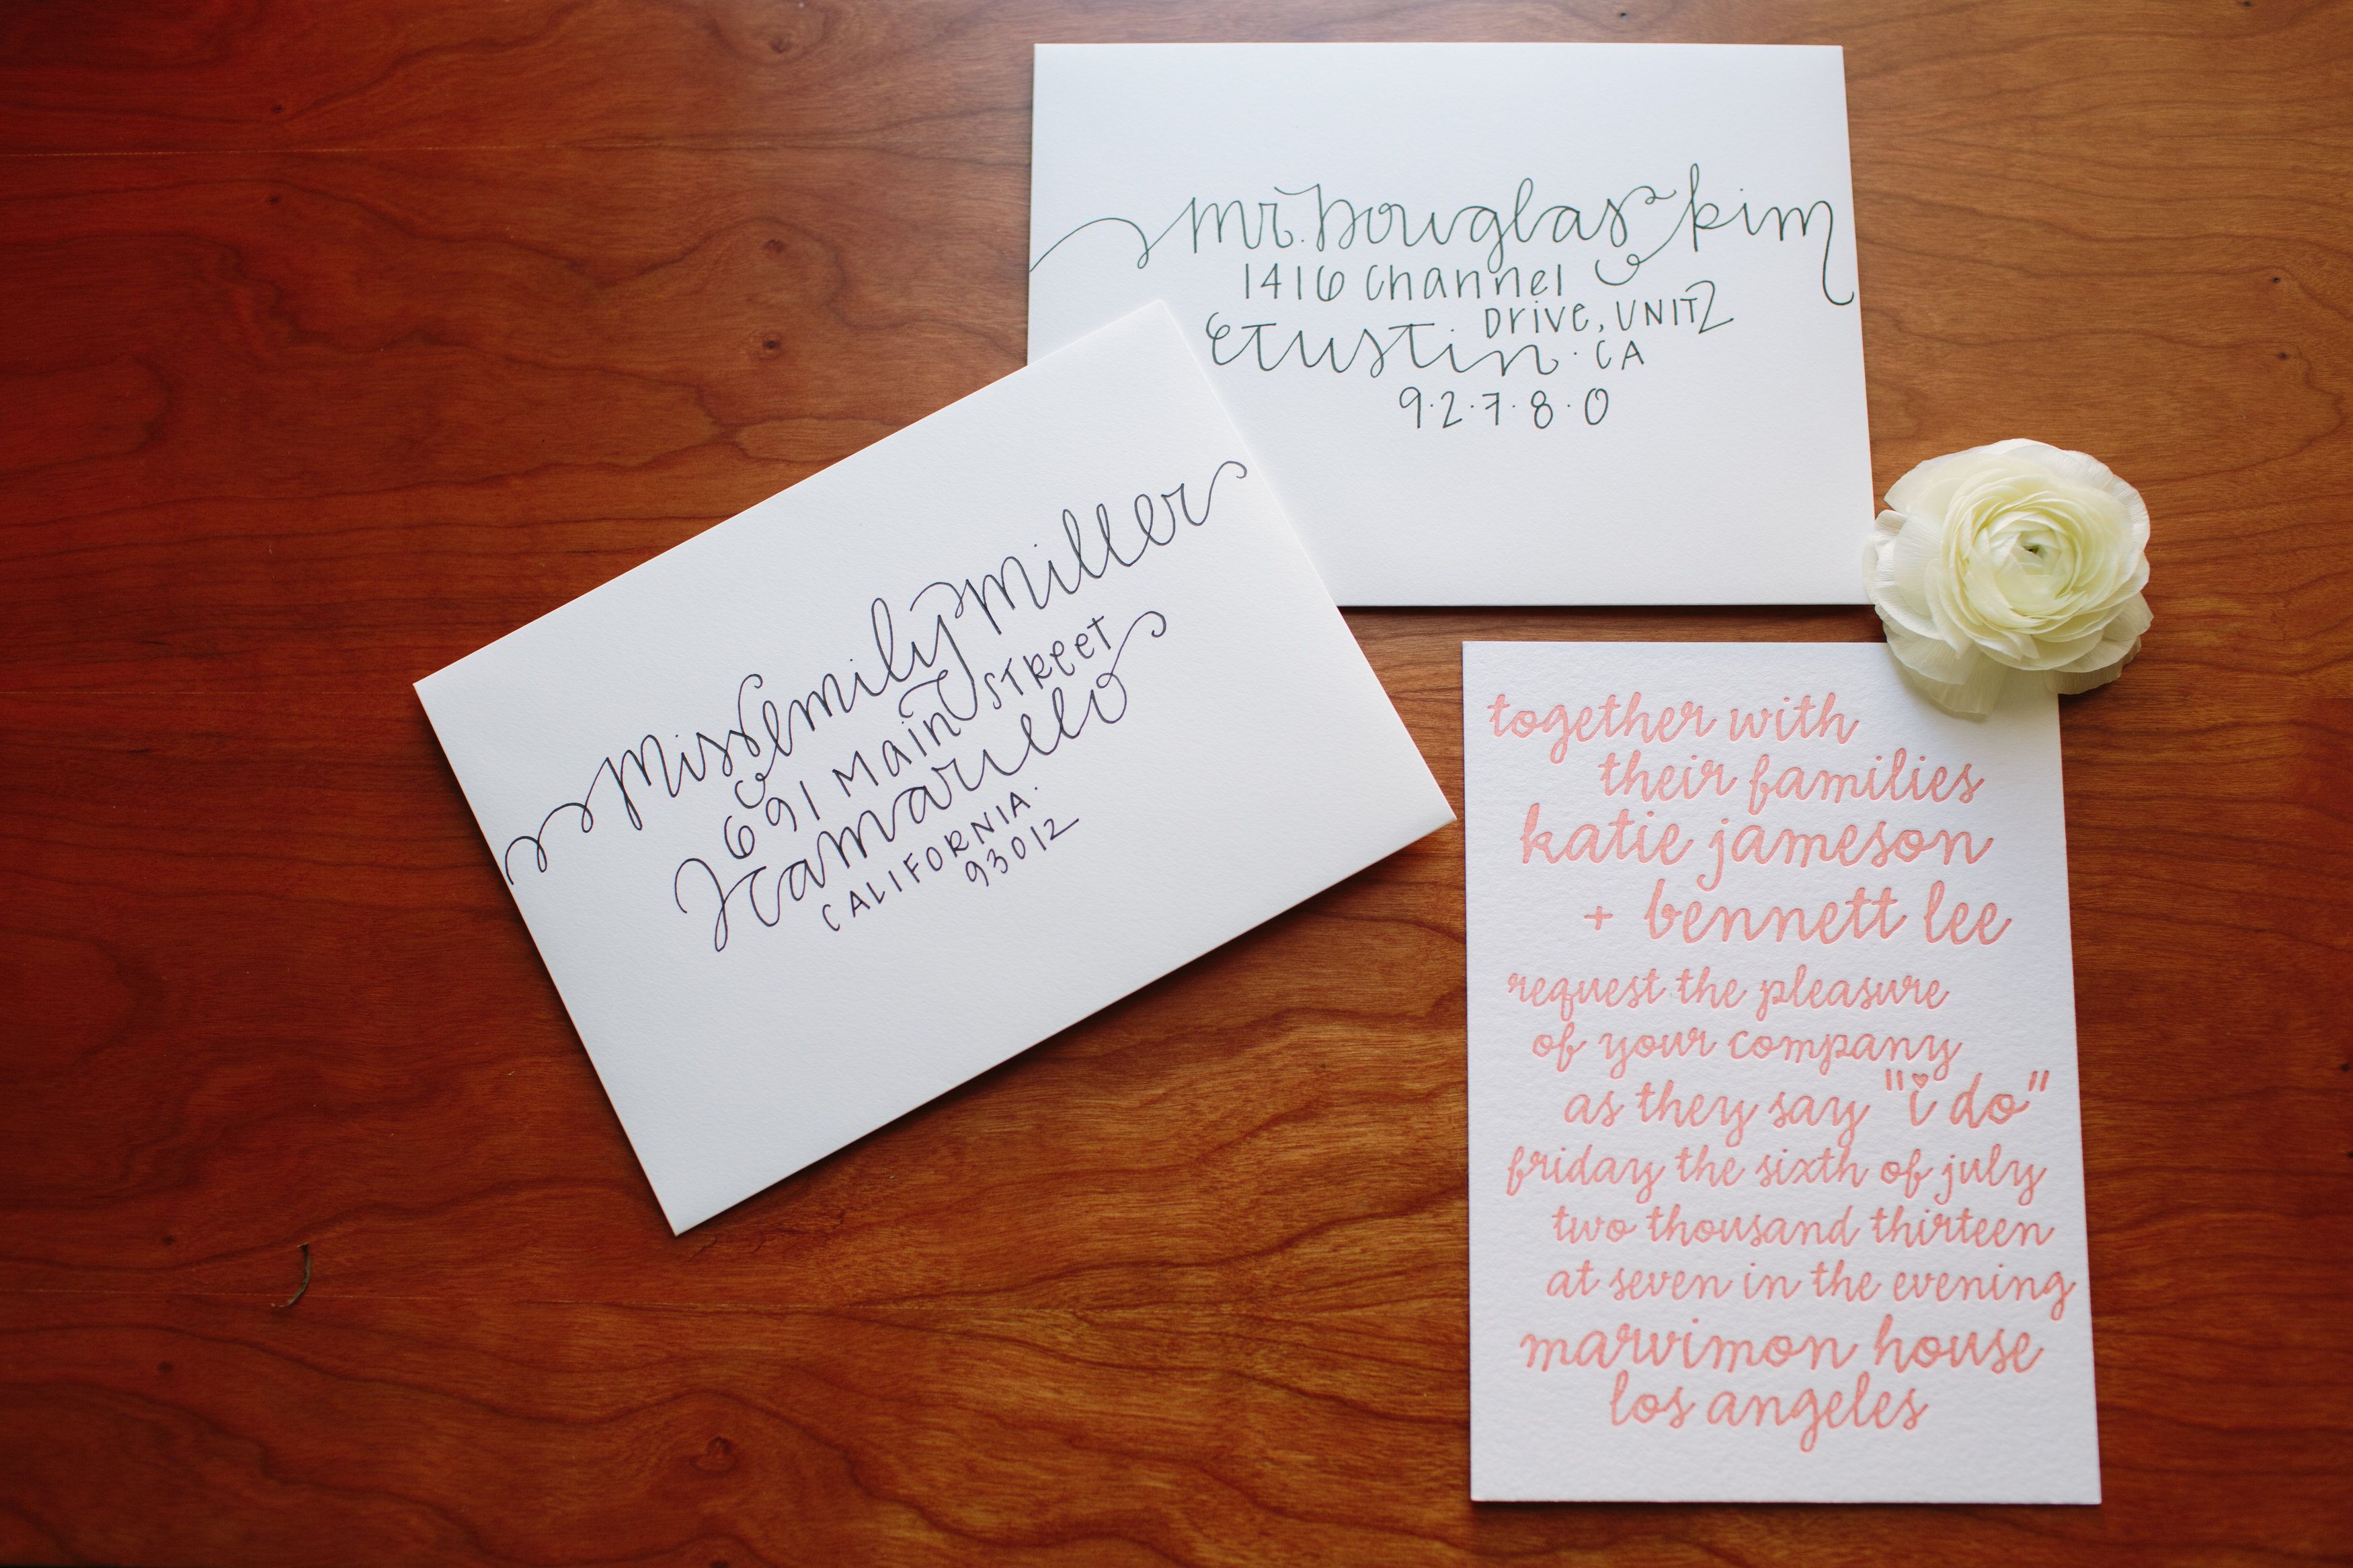 mr. Douglas kim
1416 channel
Drive, UNIT 2
Tustin · CA
9·2·7·8·0
miss emily miller
691 Main STReeT
camarillo
CALIFORNIA·
93012
together with
their families
katie jameson
+ bennett lee
request the pleasure
of your company
as they say "i do"
friday the sixth of july
two thousand thirteen
at seven in the evening
marvimon house
los angeles